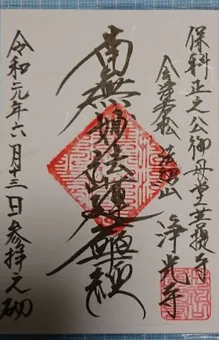 保科正之公御母堂菩提寺
会津若松 浄光寺
南無妙法蓮華経
令和元年六月十三日参拝之砌